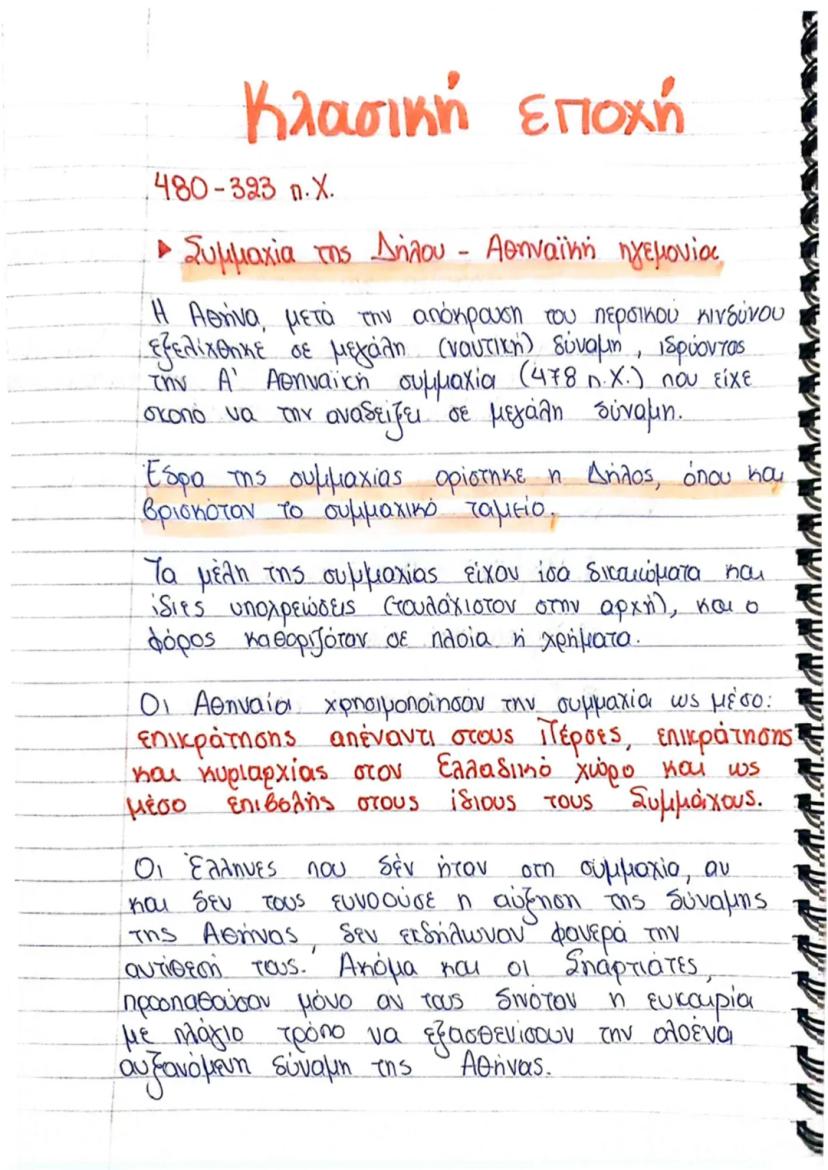 Κλασική εποχή
480-323 π.Χ.
▸ Συμμαχία της Δήλου - Αθηναϊκή ηγεμονία
Η Αθήνα, μετά την απόκρουση του περσικού κινδύνου
εξελίχθηκε σε μεγάλη (ναυτική) δύναμη, ιδρύοντας
την Α' Αθηναϊκή συμμαχία (478 π.Χ.) που είχε
σκοπό να την αναδείξει σε μεγάλη δύναμη.
Έδρα της συμμαχίας ορίστηκε η Δήλος, όπου και
βρισκόταν το συμμαχικό ταμείο.
Τα μέλη της συμμαχίας είχαν ίσα δικαιώματα και
ίδιες υποχρεώσεις (τουλάχιστον στην αρχή), και ο
φόρος καθοριζόταν σε πλοία ή χρήματα.
Οι Αθηναίοι χρησιμοποίησαν την συμμαχία ως μέσο:
επικράτησης απέναντι στους Πέρσες, επικράτησης
και κυριαρχίας στον Ελλαδικό χώρο και ως
μέσο επιβολής στους ίδιους τους Συμμάχους.
Οι Έλληνες που δέν ήταν στη συμμαχία, αν
και δεν τους ευνοούσε η αύξηση της δύναμης
της Αθήνας, δεν εκδήλωναν φανερά την
αντίθεσή τους. Ακόμα και οι Σπαρτιάτες,
προσπαθούσαν μόνο αν τους δινόταν η ευκαιρία
με πλάγιο τρόπο να εξασθενίσουν την ολοένα
αυξανόμενη δύναμη της Αθήνας.